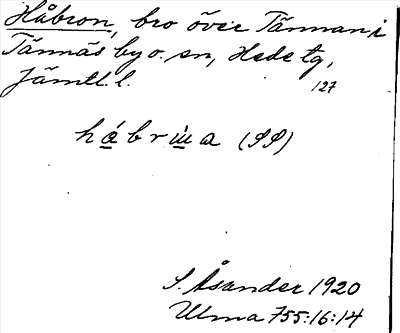 Håbron, bro över Tännan i
Tännäs by o. sn, Hede tg,
Jämtl. l.
127
hǻbrẃna (SS)
S. Åsander 1920
Ulma 755:16:14